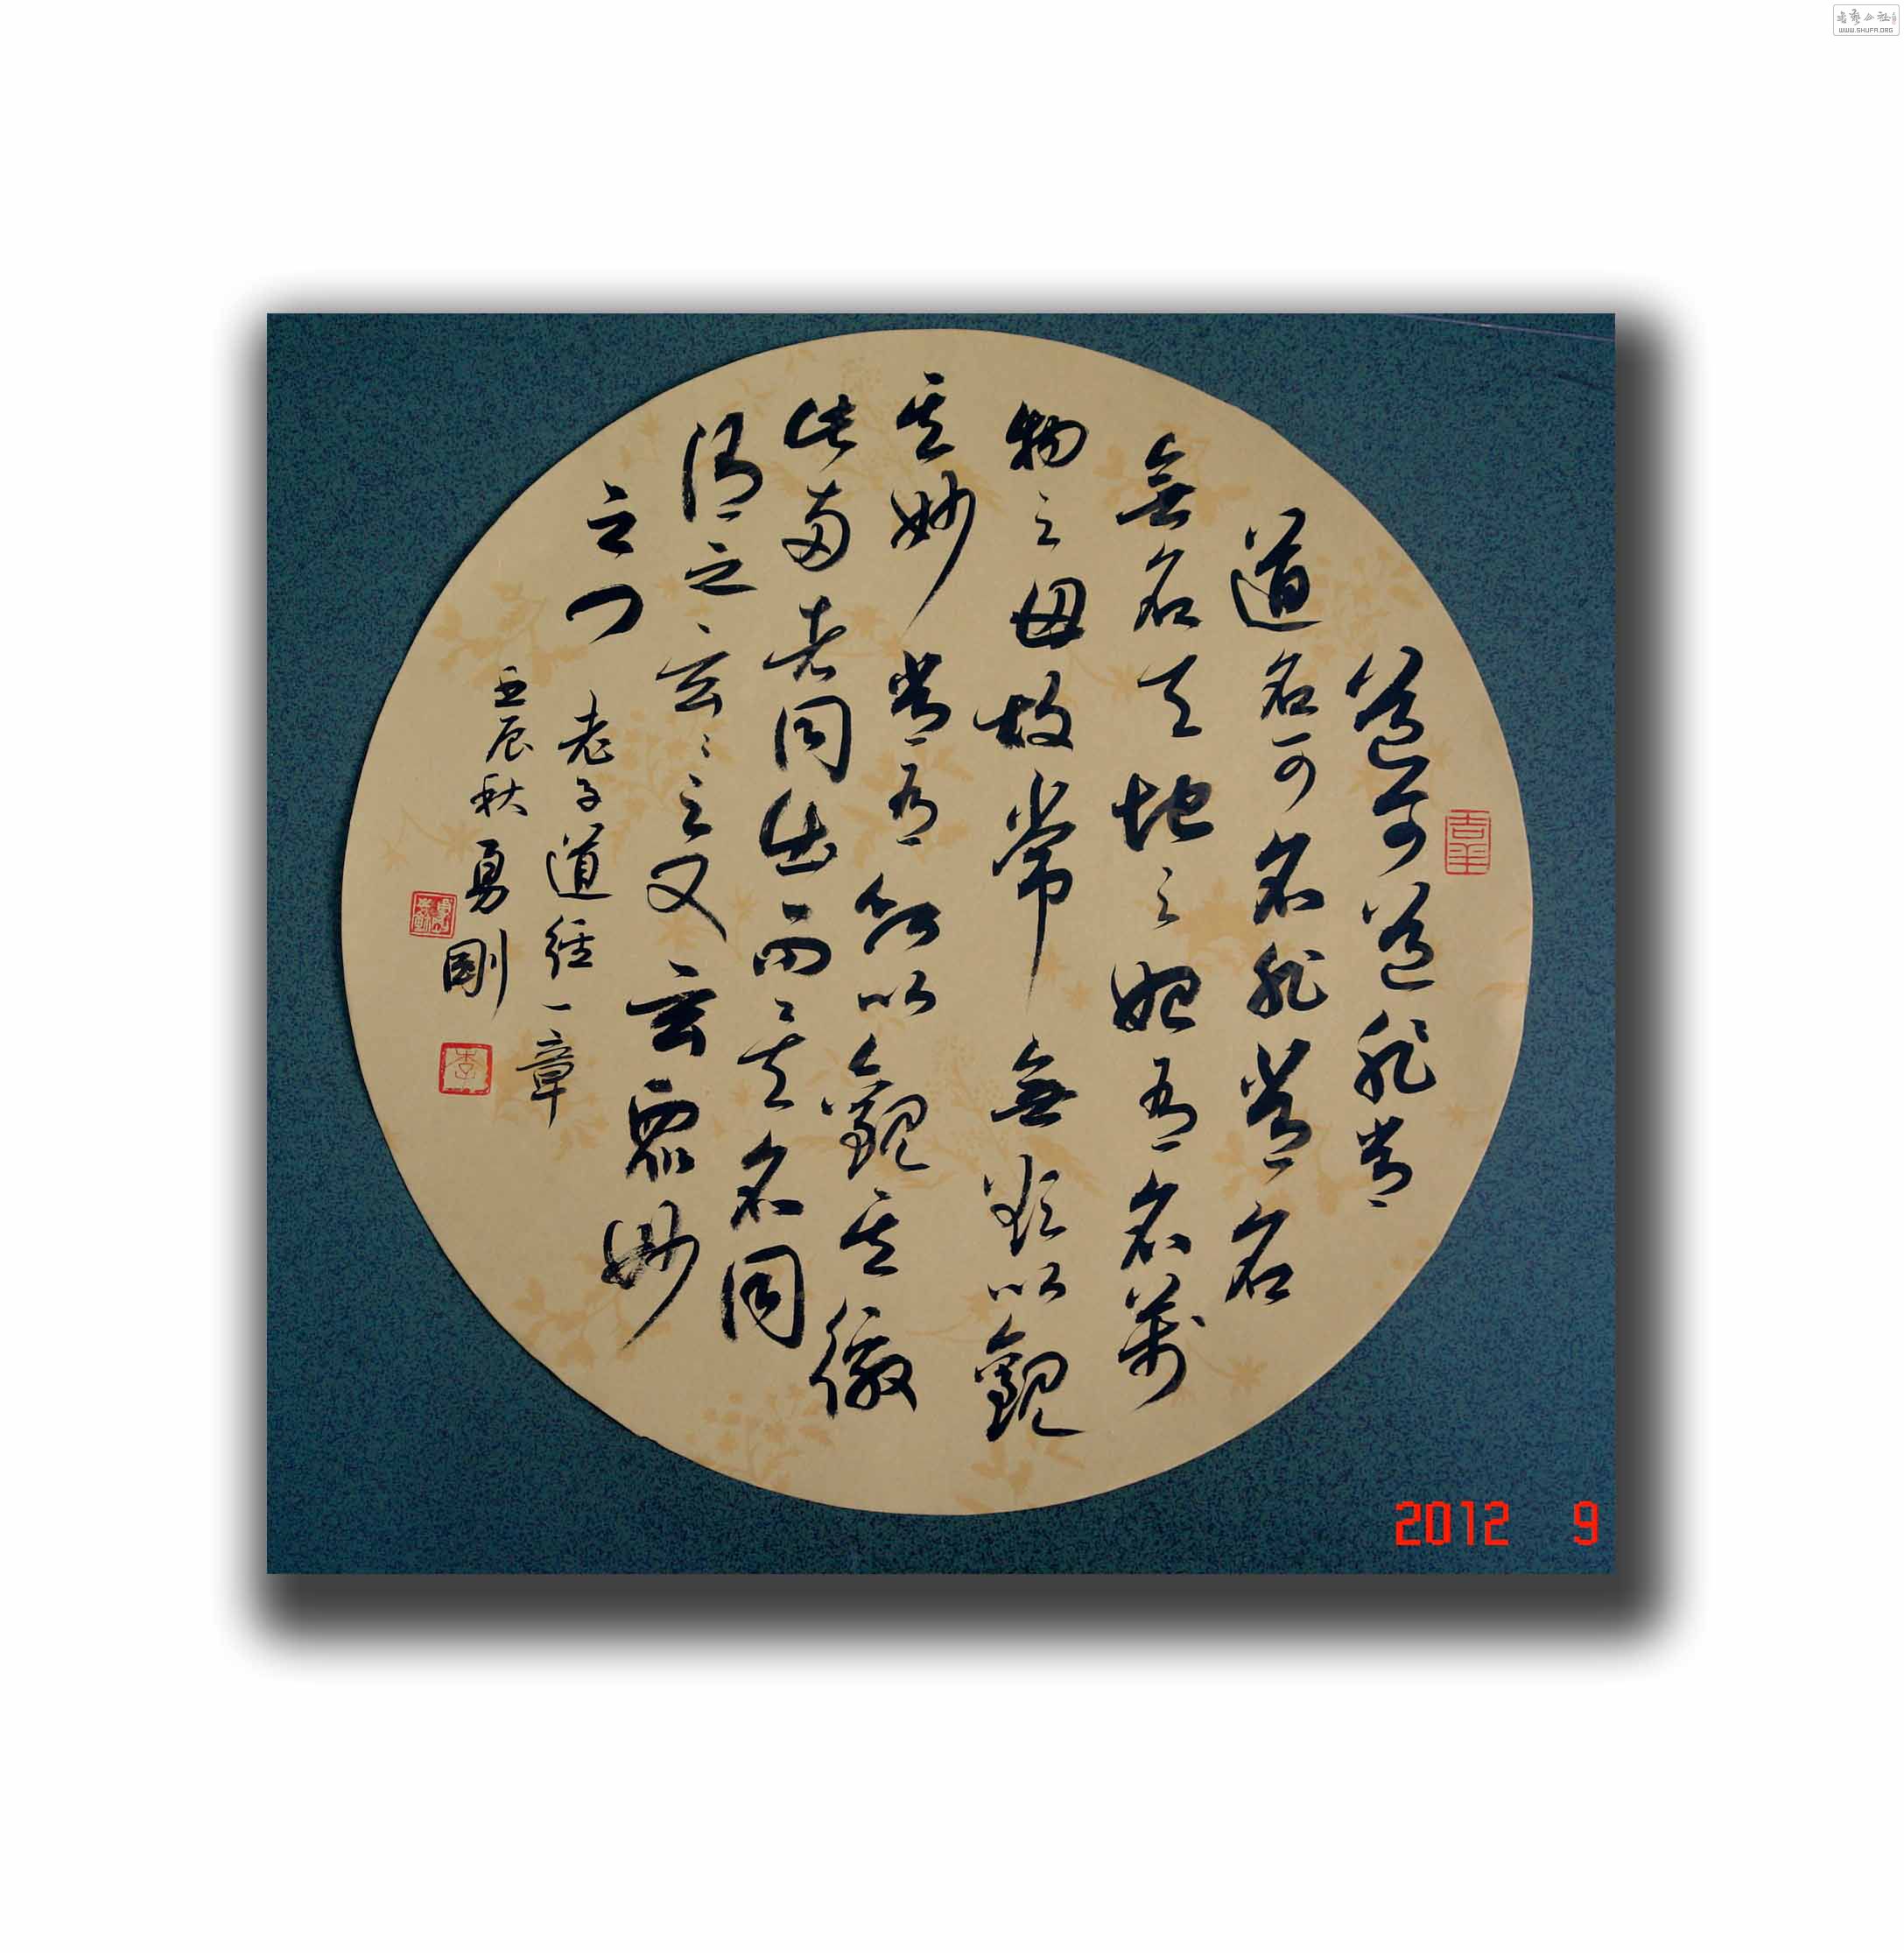 道可道非常
道名可名非常名
無名天地之始有名萬
物之母故常無欲以觀
其妙常有欲以觀其徼
此兩者同出而異名同
謂之玄〻之又玄眾妙
之门
老子道經一章
壬辰秋勇剛
吉羊
李
2012 9
WWW.SHUFA.ORG